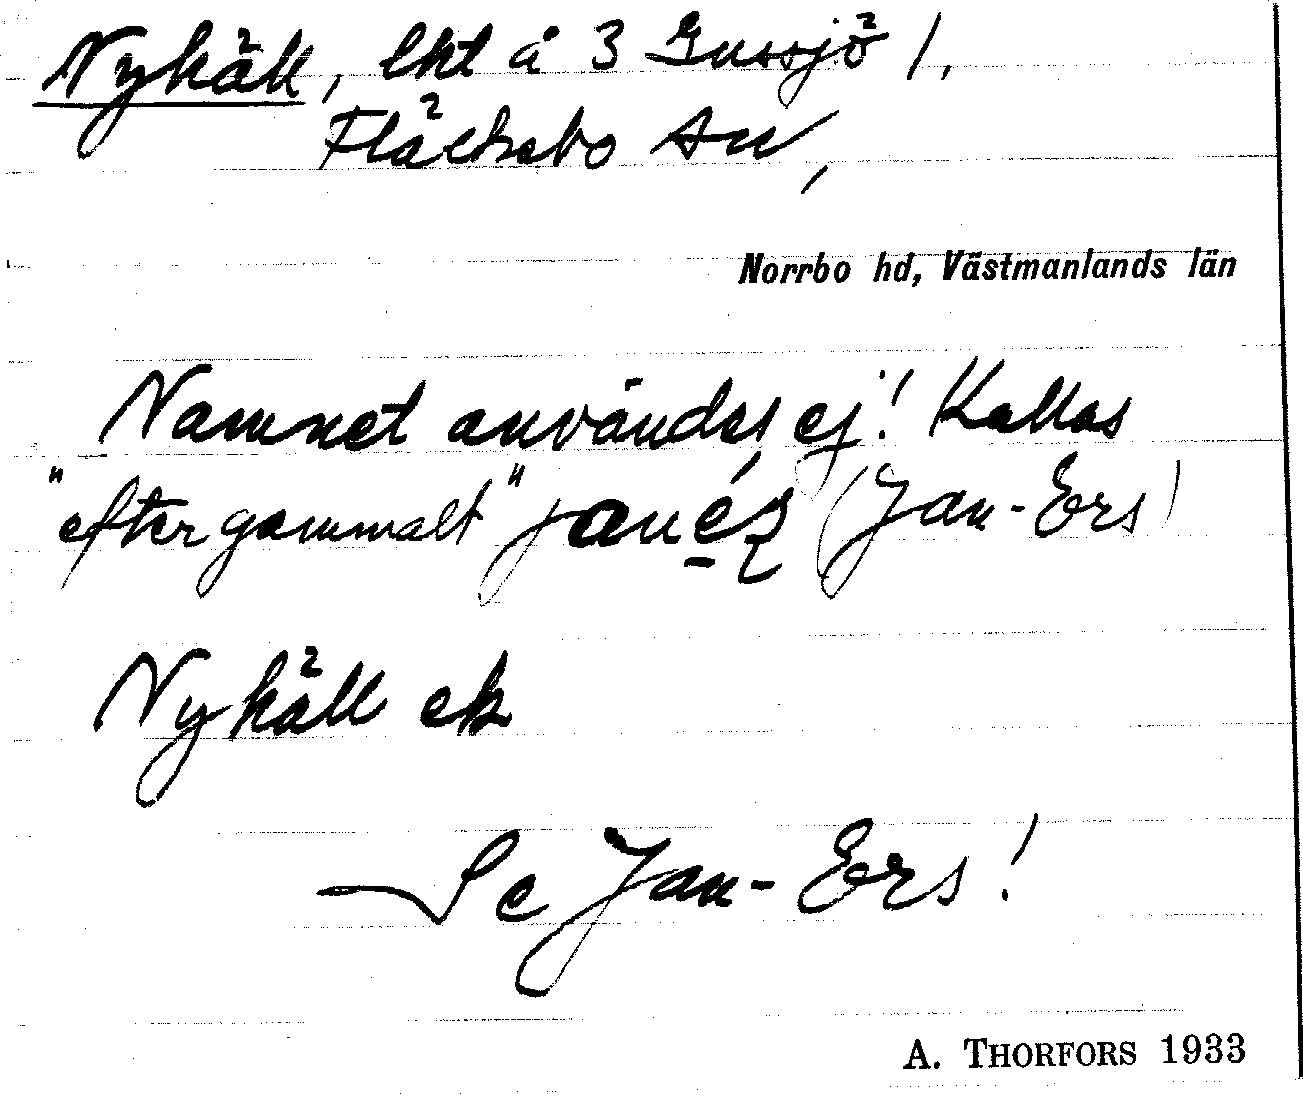 Nykäll, lht å 3 Gussjö 1,
Fläckebo sn,
Norrbo hd, Västmanlands län
Namnet användes ej! Kallas
"efter gammalt" (Jan-Ers!
Nykäll ek
Se Jan-Ers!
A. THORFORS 1933